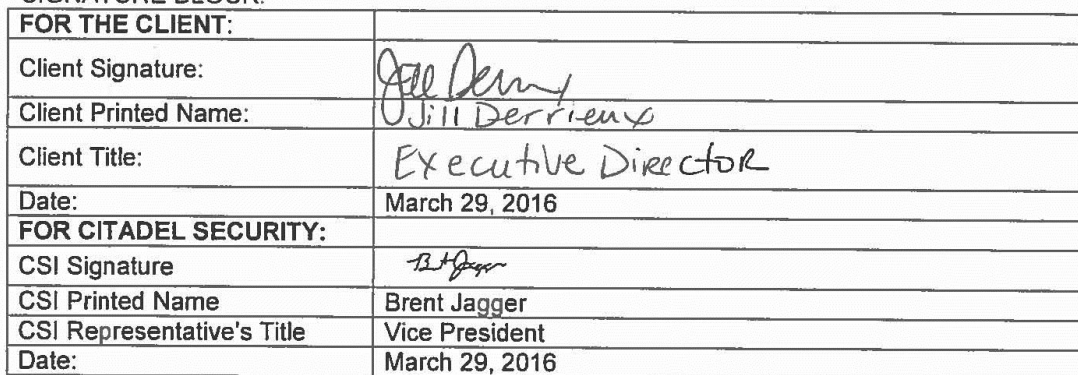 SIGNATURE BLOCK:
FOR THE CLIENT:
Client Signature: Jill Derrieux
Client Printed Name: Jill Derrieux
Client Title: Executive Director
Date: March 29, 2016
FOR CITADEL SECURITY:
CSI Signature Brent Jagger
CSI Printed Name Brent Jagger
CSI Representative's Title Vice President
Date: March 29, 2016